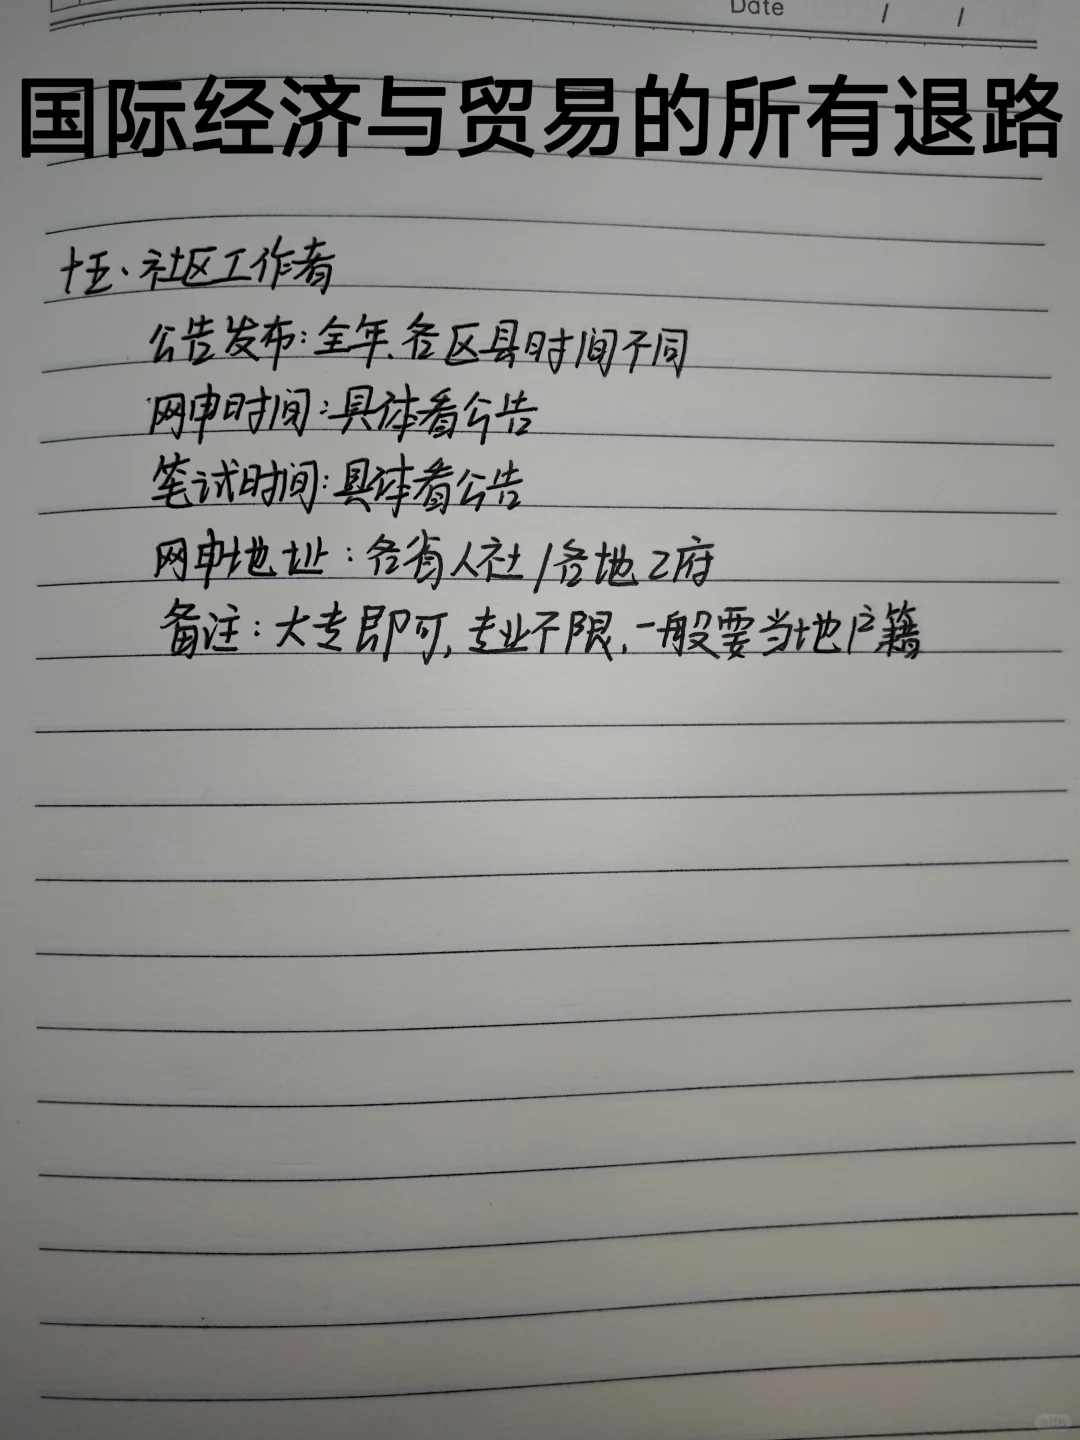 Date / /
国际经济与贸易的所有退路
十五、社区工作者
公告发布:全年,各区县时间不同
网申时间:具体看公告
笔试时间:具体看公告
网申地址:各省人社/各地Z府
备注:大专即可,专业不限,一般要当地户籍
小红书